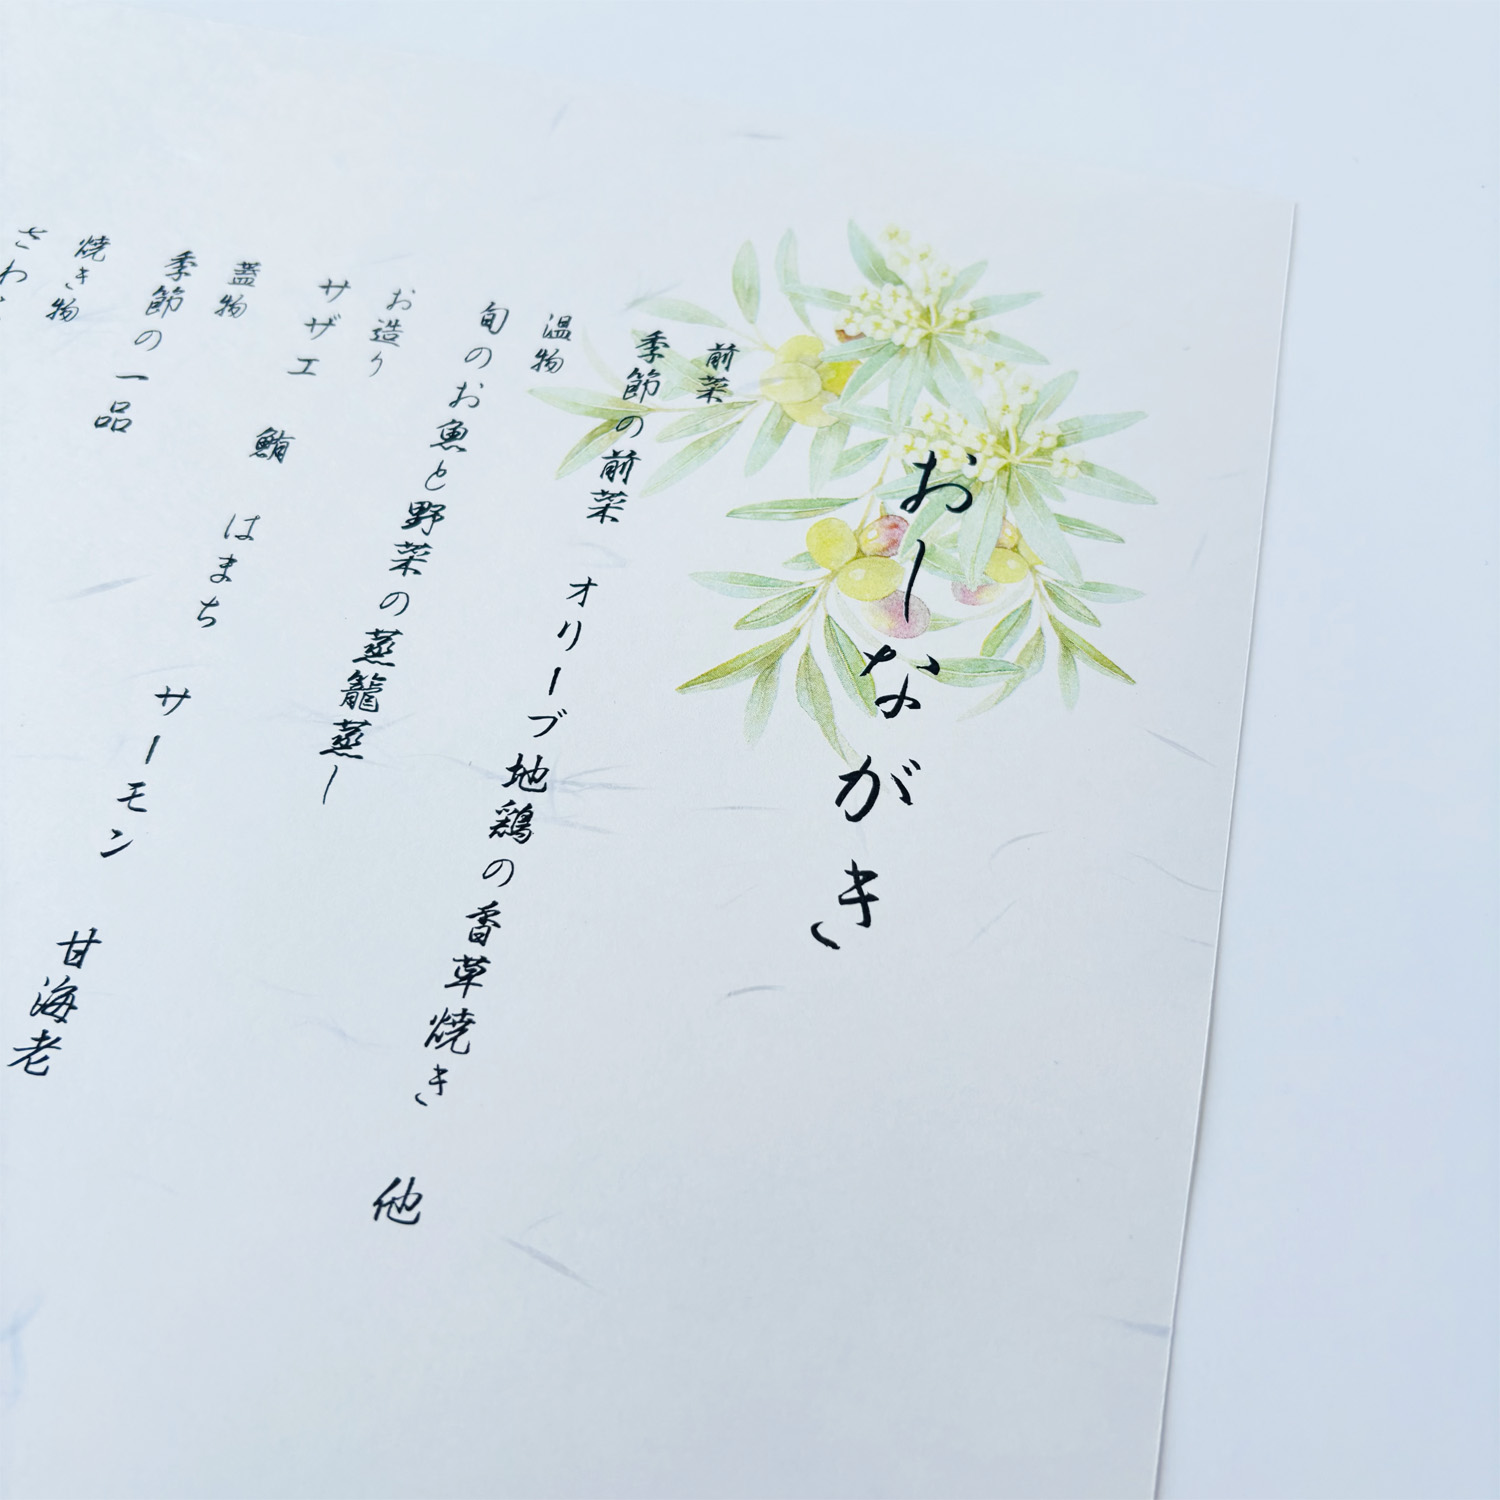 おーながき
前菜
季節の前菜 オリーブ地鶏の香草焼き 他
温物
旬のお魚と野菜の蒸籠蒸し
お造り
サザエ 鮪 はまち サーモン 甘海老
蓋物
季節の一品
焼き物
さわ